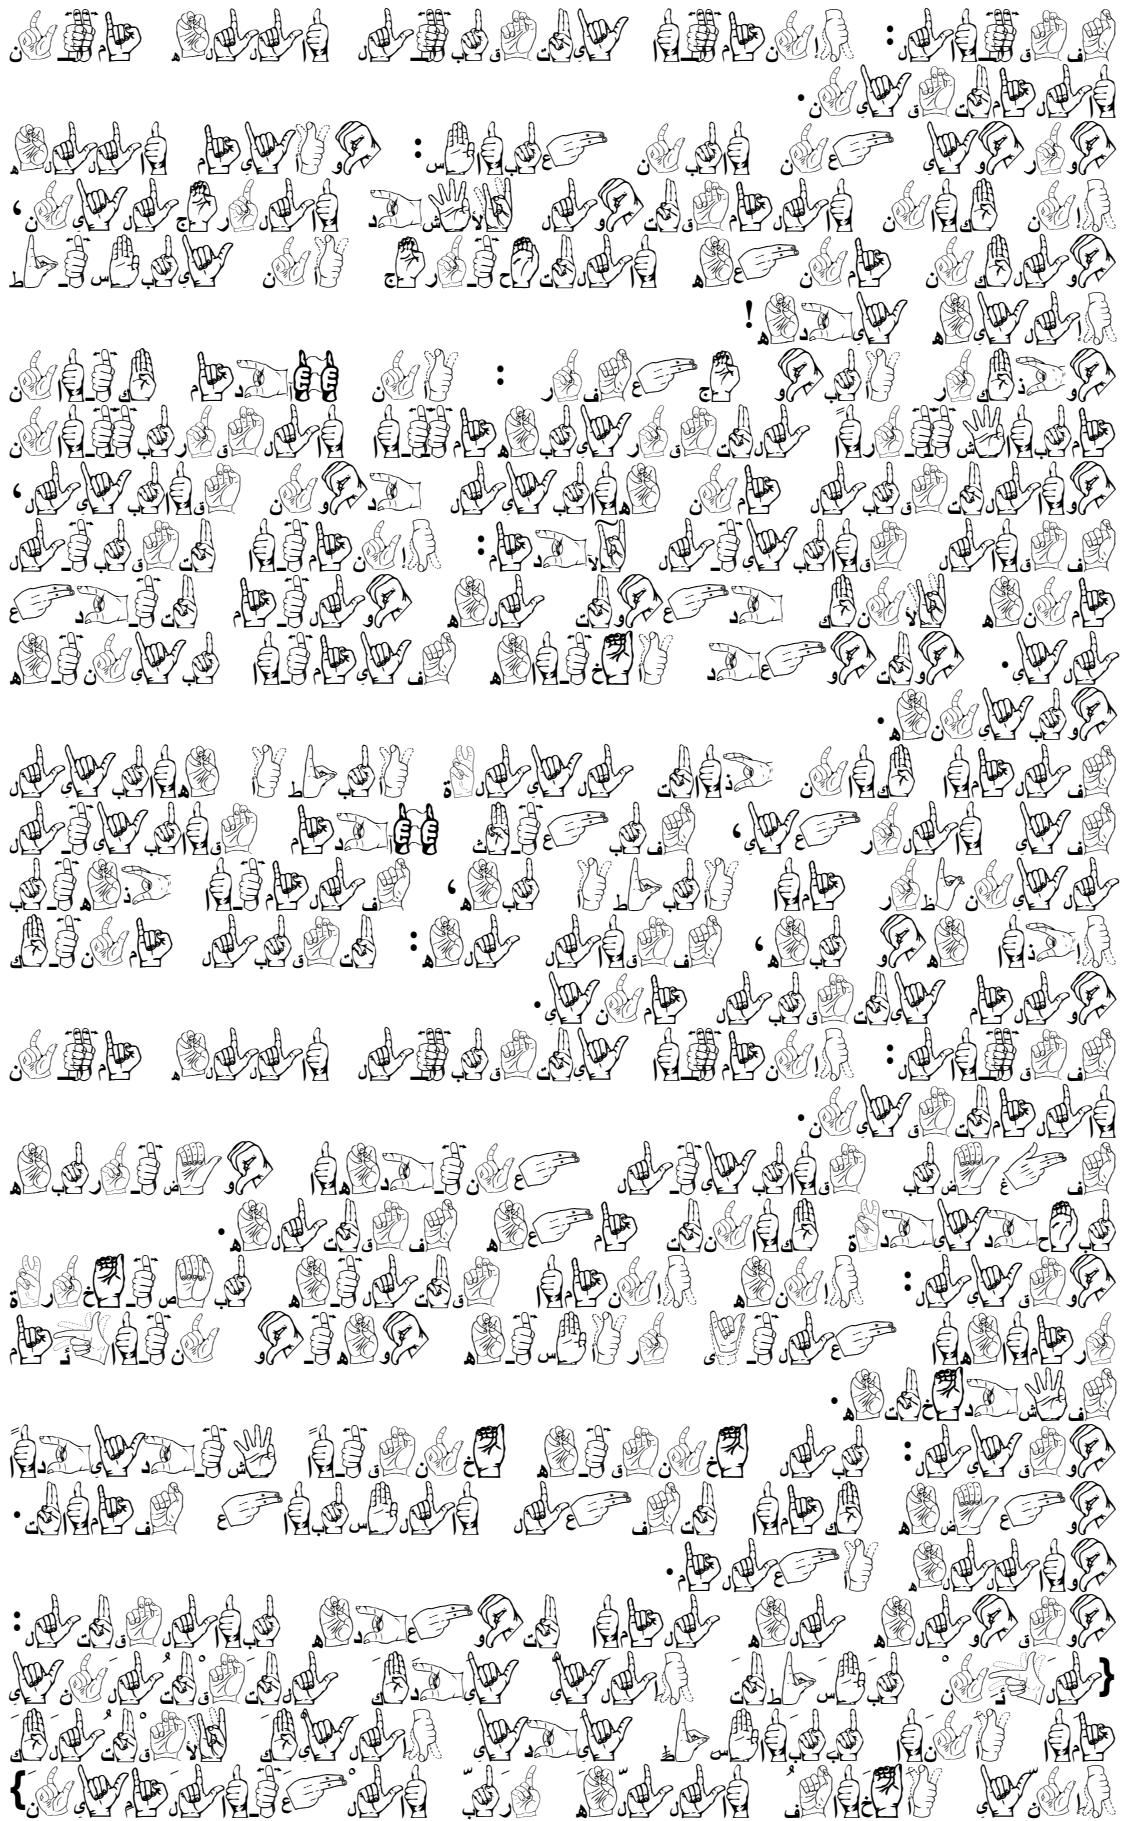 فقال: إنما يتقبل الله من
المتقين.
وروي عن ابن عباس: وأيم الله
إن كان المقتول لأشد الرجلين،
ولكن منعه التحرج أن يبسط
إليه يده!
وذكر أبو جعفر : أن آدم كان
مباشرا لتقريبهما القربان
والتقبل من هابيل دون قابيل،
فقال قابيل لآدم: إنما تقبل
منه لأنك دعوت له ولم تدع
لي. وتوعد أخاه فيما بينه
وبينه.
فلما كان ذات ليلة أبطأ هابيل
في الرعي، فبعث آدم قابيل
لينظر ما أبطأ به، فلما ذهب
إذا هو به، فقال له: تقبل منك
ولم يتقبل مني.
فقال: إنما يتقبل الله من
المتقين.
فغضب قابيل عندها وضربه
بحديدة كانت معه فقتله.
وقيل: إنه إنما قتله بصخرة
رماها على رأسه وهو نائم
فشدخته.
وقيل: بل خنقه خنقا شديدا
وعضه كما تفعل السباع فمات.
والله أعلم.
وقوله له لما توعده بالقتل:
{لَئِنْ بَسَطْتَ إِلَيَّ يَدَكَ لِتَقْتُلَنِي
مَا أَنَا بِبَاسِطٍ يَدِيَ إِلَيْكَ لِأَقْتُلَكَ
إِنِّي أَخَافُ اللَّهَ رَبَّ الْعَالَمِينَ}